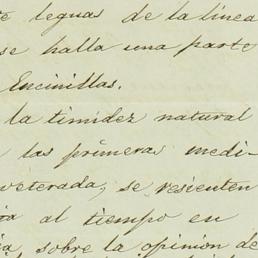 te leguas de la linea
se halla una parte
Encinillas.
la timidez natural
las primeras medi-
veterada, se resienten
al tiempo en
sobre la opinion de